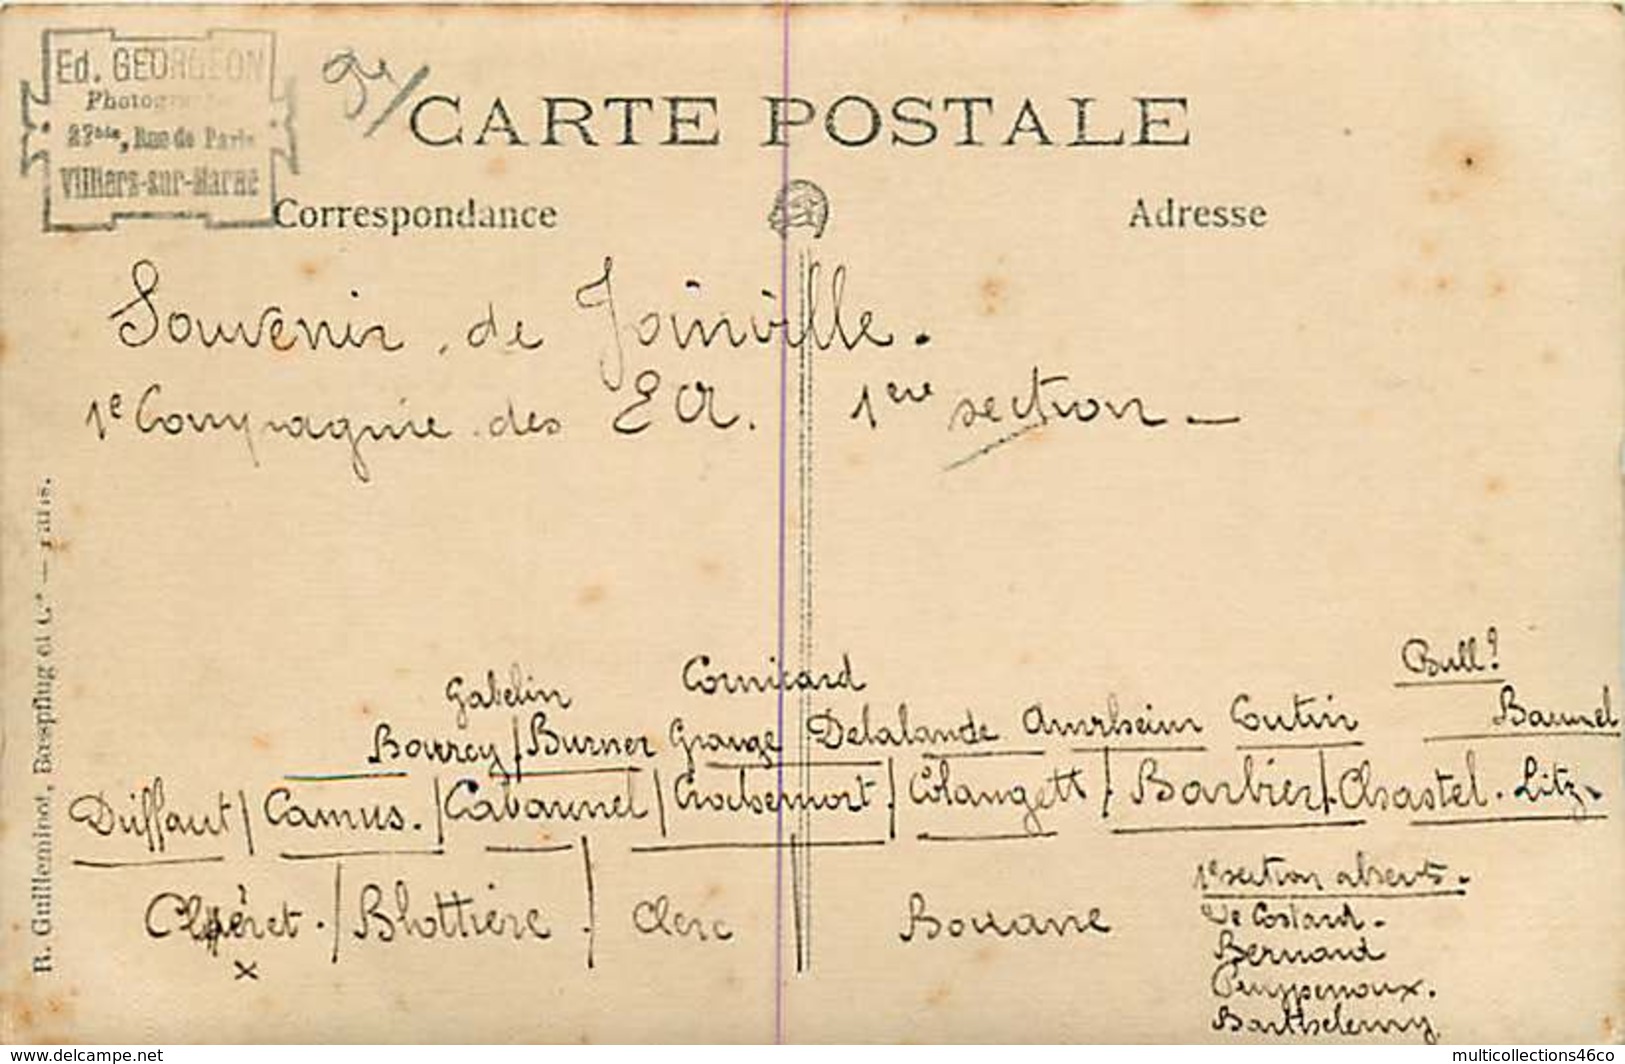 Ed. GEORGEON
Photographe
27bis, Rue de Paris
Villiers-sur-Marne
CARTE POSTALE
Correspondance
Adresse
Souvenir de Joinville.
1e Compagnie des EA. 1ere section -
R. Guilleminot, Bœspflug et Cie — Paris.
Bull?
Gabelin Cornicard
Bourrey / Burner Grange Delalande Amrheim Coutin Baunel
Duffaut / Camus. / Cabaunel / Crochemort / Colangett / Barbier / Chastel. Litz.
Cléret. / Blottière / Clerc Bouane
x
1e section absents.
De Costard.
Bernard
Barthelemy
multicollections46co
www.delcampe.net